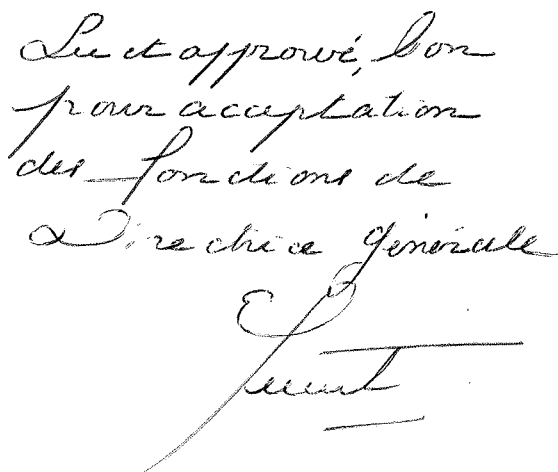 Lu et approuvé, bon
pour acceptation
des fonctions de
Directrice générale